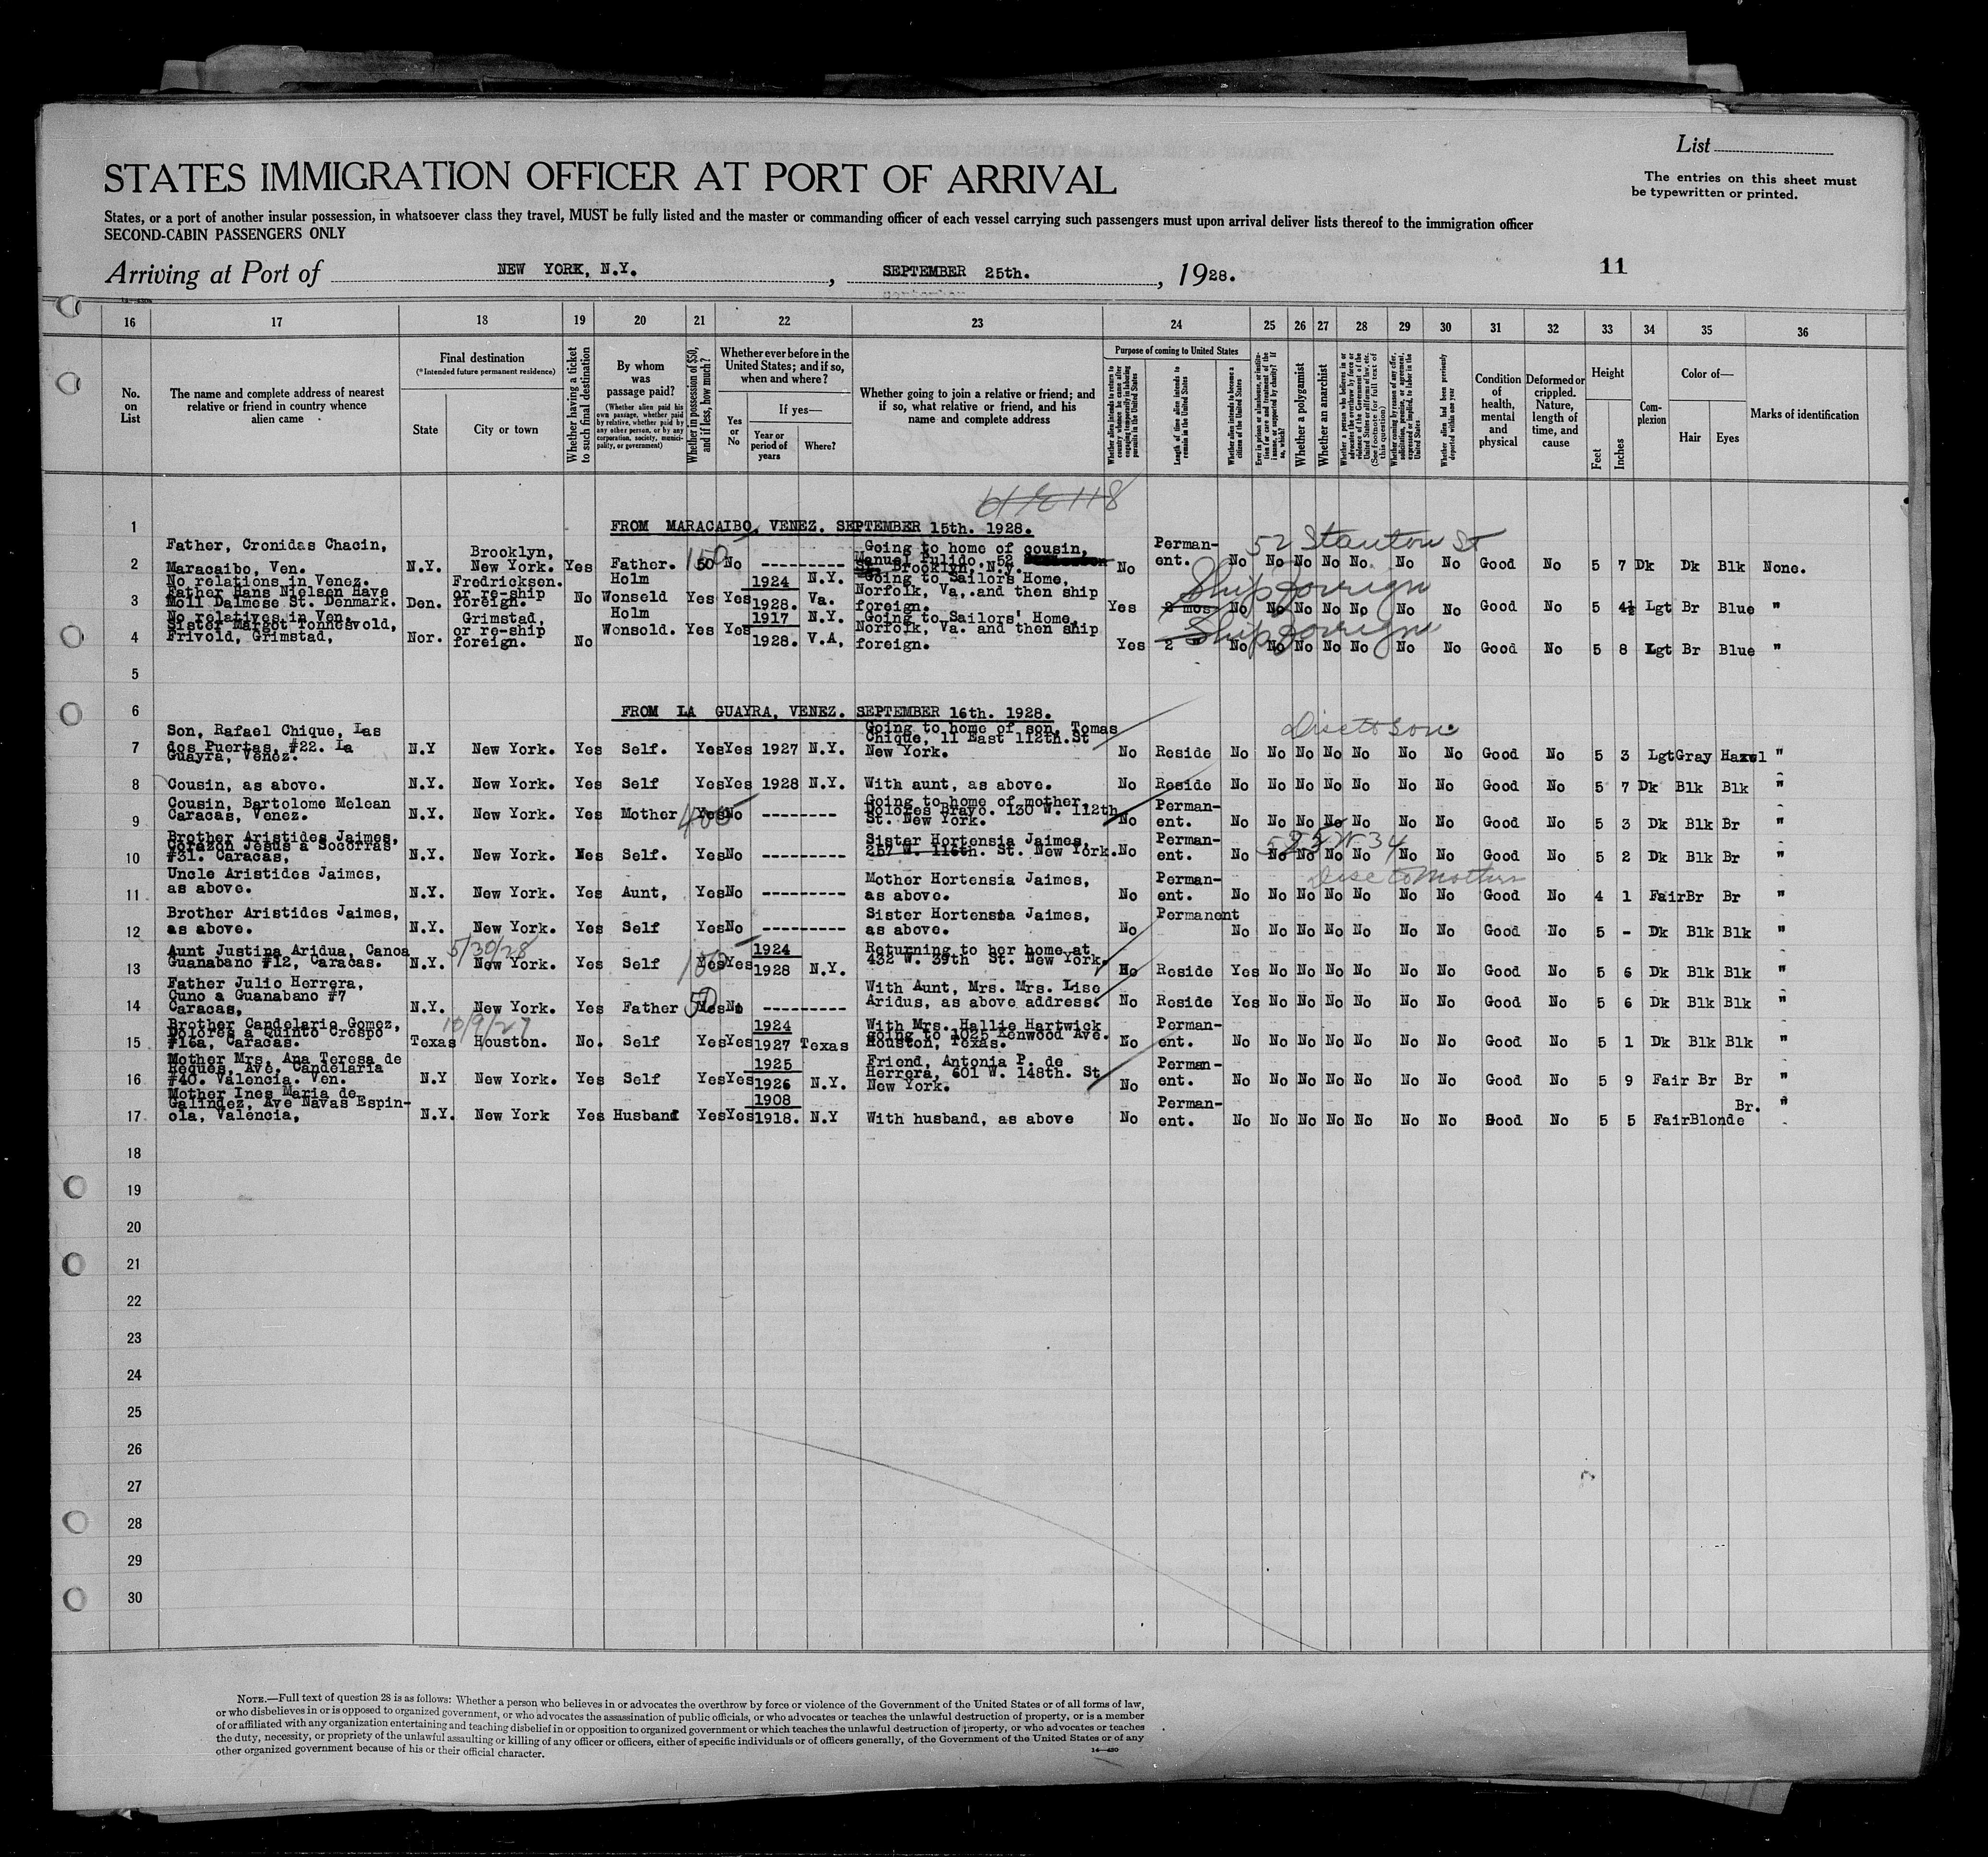 List
The entries on this sheet must
be typewritten or printed.
STATES IMMIGRATION OFFICER AT PORT OF ARRIVAL
States, or a port of another insular possession, in whatsoever class they travel, MUST be fully listed and the master or commanding officer of each vessel carrying such passengers must upon arrival deliver lists thereof to the immigration officer
SECOND-CABIN PASSENGERS ONLY
Arriving at Port of NEW YORK, N.Y. , SEPTEMBER 25th. , 1928.
11
16 17 18 19 20 21 22 23 24 25 26 27 28 29 30 31 32 33 34 35 36
No. on List
The name and complete address of nearest relative or friend in country whence alien came
Final destination
(*Intended future permanent residence)
State
City or town
Whether having a ticket to such final destination
By whom was passage paid?
(Whether alien paid his own passage, whether paid by relative, whether paid by any other person, or by any corporation, society, municipality, or government)
Whether in possession of $50, and if less, how much?
Whether ever before in the United States; and if so, when and where?
Yes or No
If yes—
Year or period of years
Where?
Whether going to join a relative or friend; and if so, what relative or friend, and his name and complete address
Purpose of coming to United States
Whether alien intends to return to country whence he came after engaging temporarily in laboring pursuits in the United States
Length of time alien intends to remain in the United States
Whether alien intends to become a citizen of the United States
Whether a polygamist
Whether an anarchist
Condition of health, mental and physical
Deformed or crippled. Nature, length of time, and cause
Height
Feet
Inches
Complexion
Color of—
Hair
Eyes
Marks of identification
1 FROM MARACAIBO, VENEZ. SEPTEMBER 15th. 1928.
52 Stanton St
2 Father, Cronidas Chacin, Maracaibo, Ven. N.Y. Brooklyn, New York. Yes Father. 50 150 No --------- Going to home of cousin, Manuel Pulido. 52 St. Brooklyn, N.Y. No Perman-ent. No No No No No. No No Good No 5 7 Dk Dk Blk None.
3 No relations in Venez. Father Hans Nielsen Have Moll Dalmose St. Denmark. Den. Fredricksen. or re-ship foreign. No Holm Wonseld Yes Yes 1924 1928. N.Y. Va. Going to Sailors Home, Norfolk, Va,.and then ship foreign. Yes 2 mos Ship foreign No No No No No No No Good No 5 4½ Lgt Br Blue "
4 No relatives in Ven. Sister Margot Tonnesvold, Frivold, Grimstad, Nor. Grimstad, or re-ship foreign. No Holm Wonsold. Yes Yes 1917 1928. N.Y. V.A, Going to Sailors' Home, Norfolk, Va. and then ship foreign. Yes 2 " Ship foreign No No No No No No No Good No 5 8 Lgt Br Blue "
5
6 FROM LA GUAYRA, VENEZ. SEPTEMBER 16th. 1928.
7 Son, Rafael Chique, Las dos Puertas, #22. La Guayra, Venez. N.Y New York. Yes Self. Yes Yes 1927 N.Y. Going to home of son, Tomas Chique, 11 East 112th.St New York. No Reside No No No No No No No Good No 5 3 Lgt Gray Hazel "
Disc to son
8 Cousin, as above. N.Y. New York. Yes Self Yes Yes 1928 N.Y. With aunt, as above. No Reside No No No No No No No Good No 5 7 Dk Blk Blk "
9 Cousin, Bartolome Melean Caracas, Venez. N.Y. New York. Yes Mother 400 Yes No -------- Going to home of mother, Dolores Bravo. 130 W. 112th St. New York. No Perman-ent. No No No No No No No Good No 5 3 Dk Blk Br "
10 Brother Aristides Jaimes, Corazon Jesus a Socorras #31. Caracas, N.Y. New York. Yes Self. Yes No --------- Sister Hortensia Jaimes, 257 W. 116th. St. New York. No Perman-ent. No No No No No No No Good No 5 2 Dk Blk Br "
525 W 34
11 Uncle Aristides Jaimes, as above. N.Y. New York. Yes Aunt, Yes No --------- Mother Hortensia Jaimes, as above. No Perman-ent. No No No No No No No Good No 4 1 Fair Br Br "
Disc to Mother
12 Brother Aristides Jaimes, as above. N.Y. New York. Yes Self Yes No --------- Sister Hortensia Jaimes, as above. No Permanent No No No No No No No Good No 5 - Dk Blk Blk "
13 Aunt Justina Aridua, Canoa Guanabano #12, Caracas. N.Y. 5/30/28 New York. Yes Self Yes Yes 1924 1928 N.Y. Returning to her home at 432 W. 39th St. New York. No Reside Yes No No No No No No Good No 5 6 Dk Blk Blk "
14 Father Julio Herrera, Cuno a Guanabano #7 Caracas, N.Y. New York. Yes Father 50 Yes No --------- With Aunt, Mrs. Mrs. Lise Aridus, as above address. No Reside Yes No No No No No No Good No 5 6 Dk Blk Blk "
15 Brother Candelario Gomez, Dolores a Quinto Crespo #16a, Caracas. Texas 10/9/27 Houston. No. Self Yes Yes 1924 1927 Texas With Mrs. Hallie Hartwick going to 1025 Kenwood Ave. Houston, Texas. No Perman-ent. No No No No No No No Good No 5 1 Dk Blk Blk "
16 Mother Mrs. Ana Teresa de Reques, Ave. Candelaria #40. Valencia. Ven. N.Y New York. Yes Self Yes Yes 1925 1926 N.Y. Friend, Antonia P. de Herrera, 601 W. 148th. St. New York. No Perman-ent. No No No No No No No Good No 5 9 Fair Br Br "
17 Mother Ines Maria de Galindez, Ave Navas Espin-ola, Valencia, N.Y. New York Yes Husband Yes Yes 1908 1918. N.Y With husband, as above No Perman-ent. No No No No No No No Good No 5 5 Fair Blonde Br. "
18
19
20
21
22
23
24
25
26
27
28
29
30
NOTE.—Full text of question 28 is as follows: Whether a person who believes in or advocates the overthrow by force or violence of the Government of the United States or of all forms of law,
or who disbelieves in or is opposed to organized government, or who advocates the assassination of public officials, or who advocates or teaches the unlawful destruction of property, or is a member
of or affiliated with any organization entertaining and teaching disbelief in or opposition to organized government or which teaches the unlawful destruction of property, or who advocates or teaches
the duty, necessity, or propriety of the unlawful assaulting or killing of any officer or officers, either of specific individuals or of officers generally, of the Government of the United States or of any
other organized government because of his or their official character.
14—430